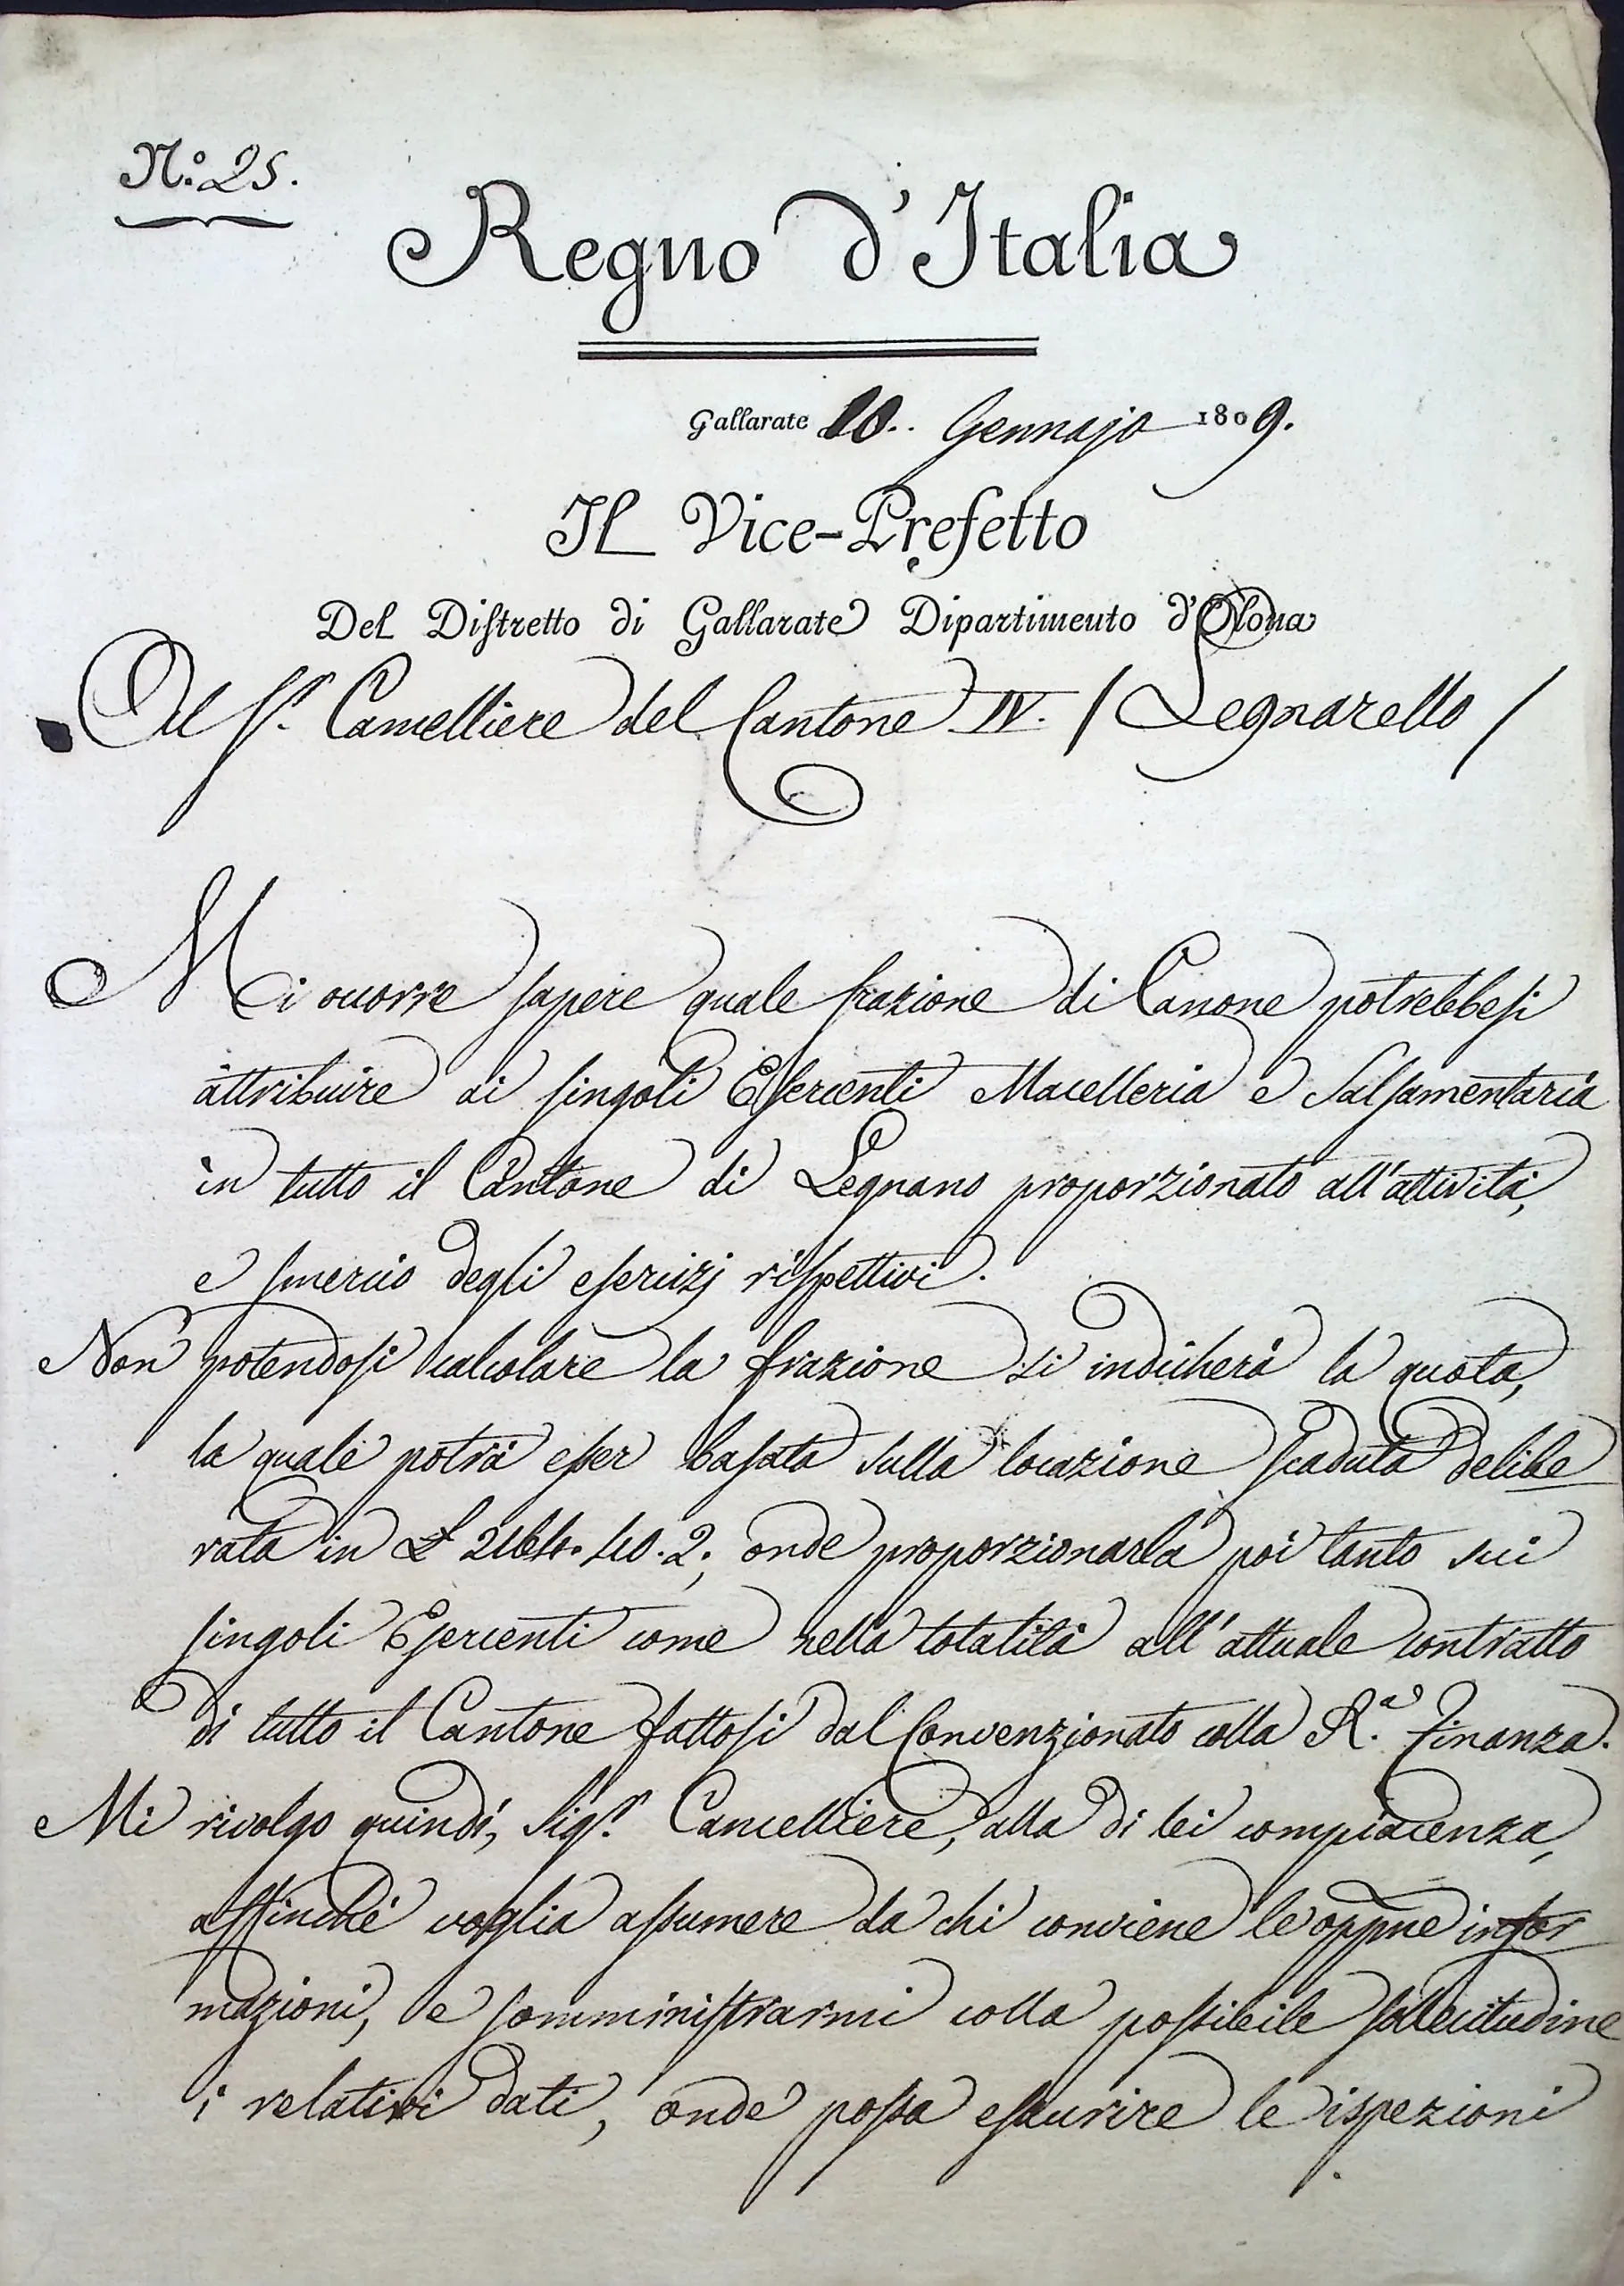 N.º 25.
Regno d'Italia
Gallarate 10. Gennajo 1809.
Il Vice-Prefetto
Del Distretto di Gallarate Dipartimento d'Olona
Al S.r Cancelliere del Cantone IV. / Legnarello /
Mi occorre sapere quale frazione di Canone potrebbesi
attribuire ai singoli Esercenti Macelleria e Salsamentaria
in tutto il Cantone di Legnano proporzionato all'attività,
e smercio degli esercizj rispettivi.
Non potendosi calcolare la frazione si indicherà la quota,
la quale potrà esser basata sulla locazione scaduta delibe
rata in £ onde proporzionarla poi tanto sui
singoli Esercenti come nella totalità all'attuale contratto
di tutto il Cantone fattosi dal Convenzionato colla R.a Finanza.
Mi rivolgo quindi, Sig.r Cancelliere, alla di lei compiacenza,
affinché voglia assumere da chi conviene le oppne infor
mazioni, e somministrarmi colla possibile sollecitudine
i relativi dati, onde possa esaurire le ispezioni